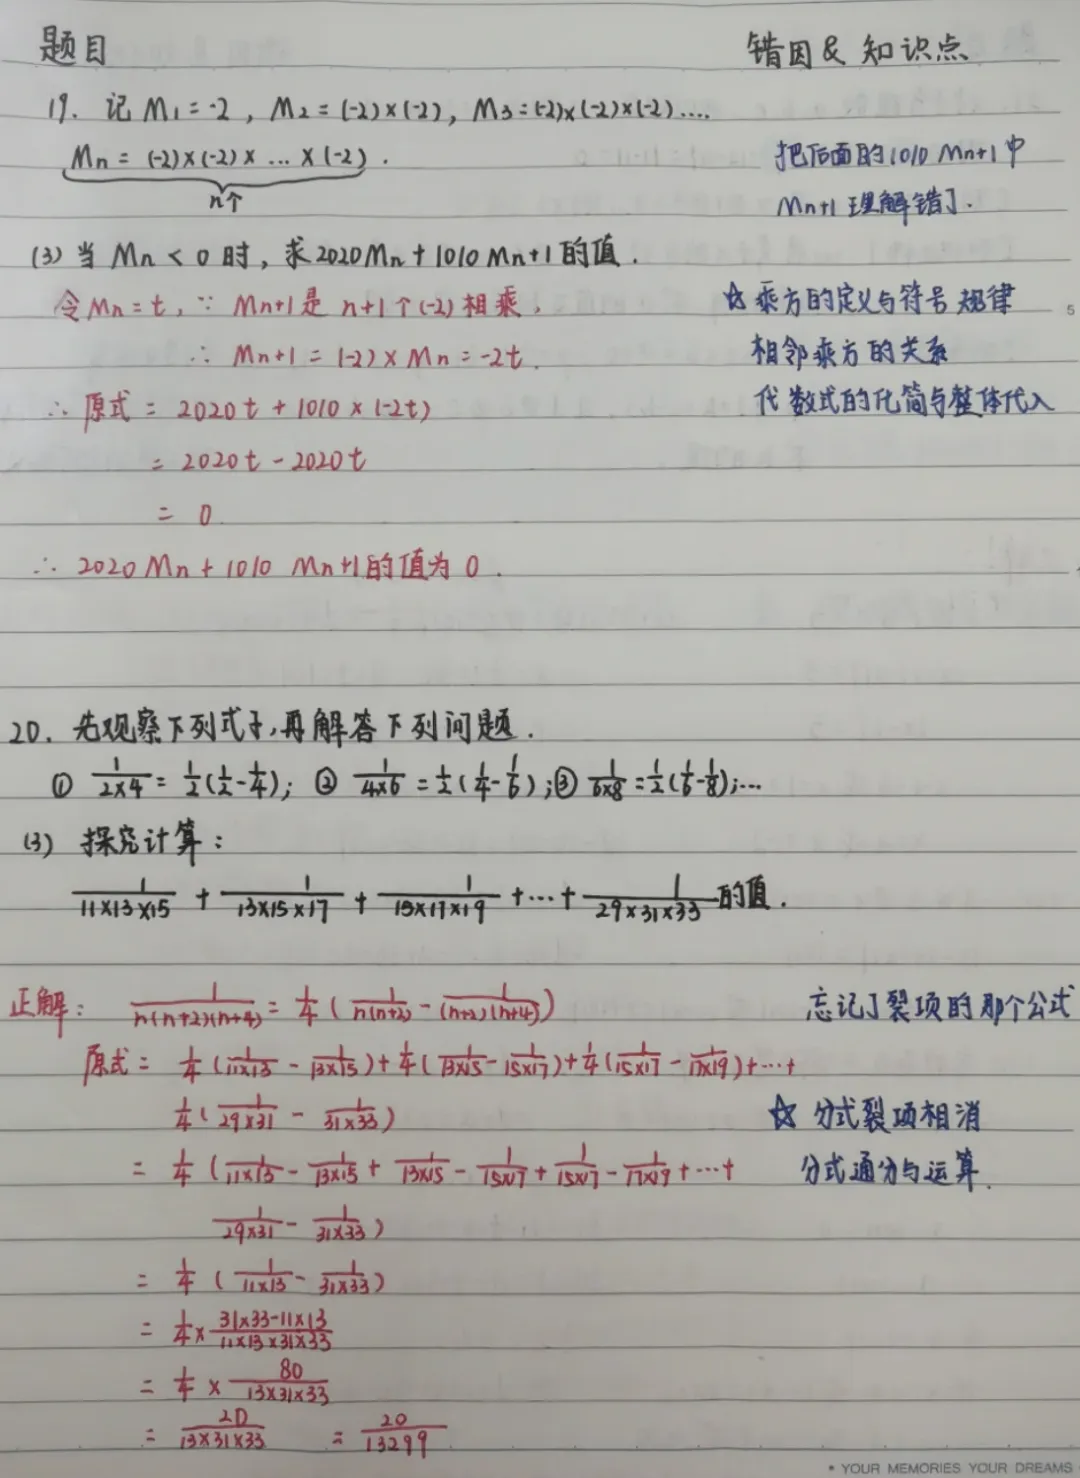 题目 错因 & 知识点
19. 记 M₁=-2, M₂=(-2)×(-2), M₃=(-2)×(-2)×(-2)....
Mn=(-2)×(-2)×...×(-2).
n个
把后面的1010 Mn+1中
Mn+1理解错了.
(3) 当 Mn<0时, 求2020Mn+1010Mn+1的值.
令Mn=t, ∵ Mn+1是 n+1个(-2)相乘,
☆ 乘方的定义与符号规律
∴ Mn+1=(-2)×Mn=-2t.
相邻乘方的关系
∴ 原式=2020t+1010×(-2t)
代数式的化简与整体代入
=2020t-2020t
=0
∴ 2020Mn+1010 Mn+1的值为0.
20. 先观察下列式子,再解答下列问题.
① 1/(2×4)=1/2(1/2-1/4); ② 1/(4×6)=1/2(1/4-1/6);③ 1/(6×8)=1/2(1/6-1/8);...
(3) 探究计算:
1/(11×13×15)+1/(13×15×17)+1/(15×17×19)+...+1/(29×31×33)的值.
正解: 1/(n(n+2)(n+4))=1/4(1/(n(n+2))-1/((n+2)(n+4)))
忘记了裂项的那个公式
原式=1/4(1/(11×13)-1/(13×15))+1/4(1/(13×15)-1/(15×17))+1/4(1/(15×17)-1/(17×19))+...+
1/4(1/(29×31)-1/(31×33))
☆ 分式裂项相消
=1/4(1/(11×13)-1/(13×15)+1/(13×15)-1/(15×17)+1/(15×17)-1/(17×19)+...+
分式通分与运算.
1/(29×31)-1/(31×33))
=1/4(1/(11×13)-1/(31×33))
=1/4×(31×33-11×13)/(11×13×31×33)
=1/4×80/(13×31×33)
=20/(13×31×33) =20/13299
• YOUR MEMORIES YOUR DREAMS